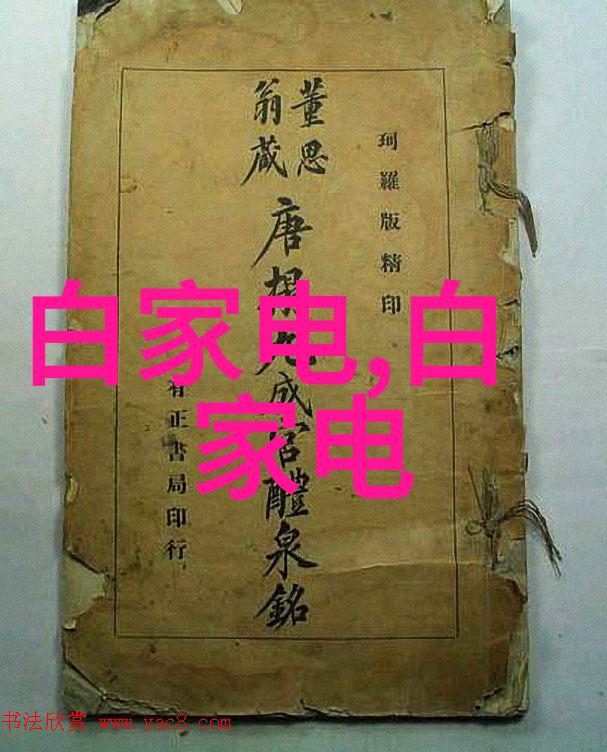 珂羅版精印
董思
翁藏
唐搨九成宮醴泉銘
有正書局印行
白家电,白
家电
书法欣赏 www.yac8.com